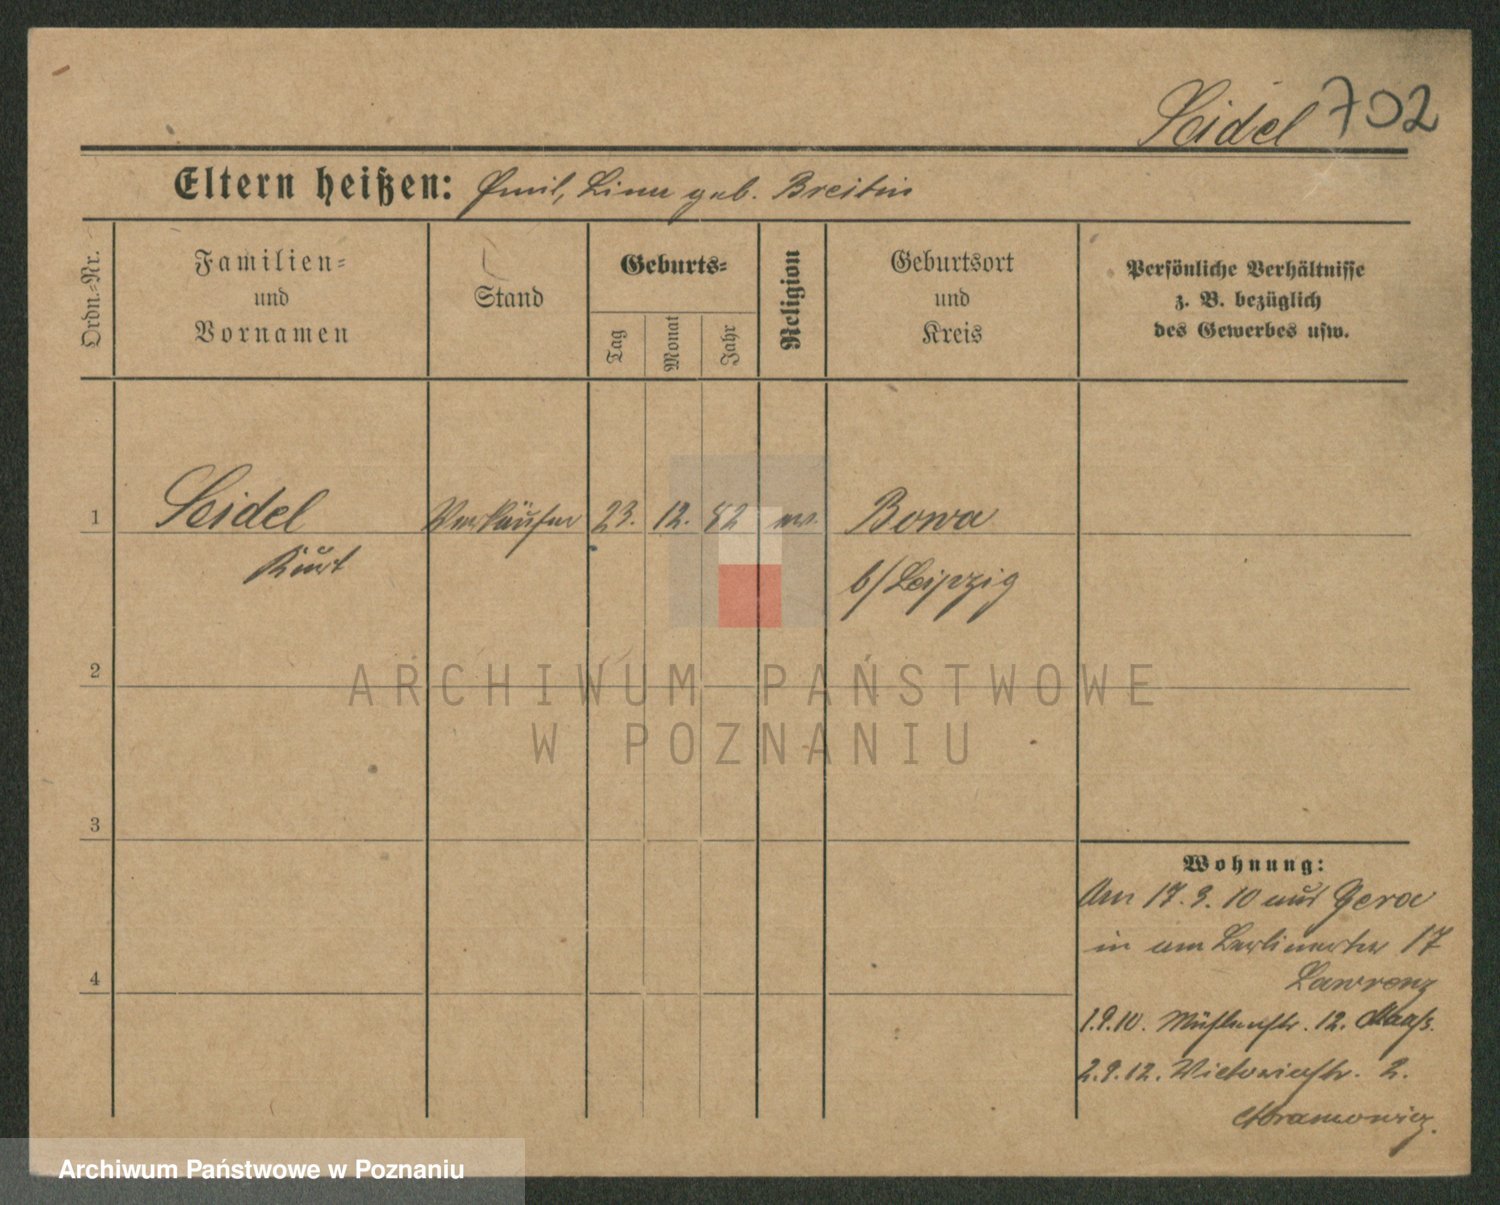 Seidel 702
Eltern heißen: Emil, Lina geb. Breitin
Ordn.-Nr.
Familien-
und
Vornamen
Stand
Geburts-
Tag
Monat
Jahr
Religion
Geburtsort
und
Kreis
Persönliche Verhältnisse
z. B. bezüglich
des Gewerbes usw.
1 Seidel Verkäufer 23. 12. 82 ev. Bowa
Kurt b/Leipzig
2
ARCHIWUM PAŃSTWOWE
W POZNANIU
3
Wohnung:
Am 17. 3. 10 aus Gera
in am Berlinerstr 17
4
Lawrenz
1.9.10. Mühlenstr. 12. Maaß.
2.9.12. Victoriastr. 2.
Abramowicz.
Archiwum Państwowe w Poznaniu